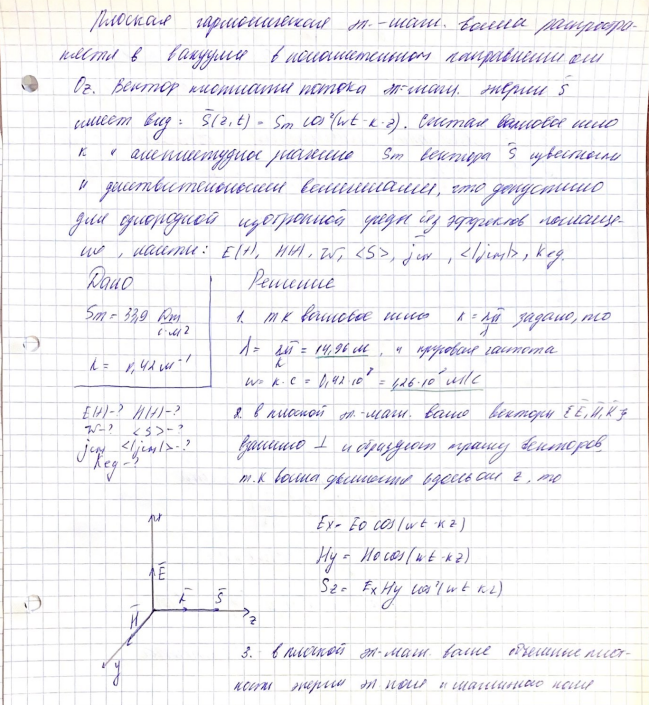 Плоская гармоническая эл.-магн. волна распростра-
няется в вакууме в положительном направлении оси
Oz. Вектор плотности потока эл-магн. энергии S̄
имеет вид: S̄(z,t) = Sm cos²(ωt-k·z). Считая волновое число
k и амплитудное значение Sm вектора S̄ известными
и действительными величинами, что допустимо
для однородной изотропной среды без эффектов поглаще-
ния, найти: E(t), H(t), w, <S>, jсм, <|jсм|>, Kед.
Дано
Решение
Sm = 33,9 Дж/с·м²
1. т.к волновое число k = 2π/λ задано, то
k = 0,42 м⁻¹
λ = 2π/k = 14,96 м, и круговая частота
ω = k·c = 0,42·10⁸ = 1,26·10⁸ м/с
E(t)-? H(t)-?
w-? <S>-?
jсм <|jсм|>-?
Kед-?
2. в плоской эл-магн. волне векторы {Ē, H̄, k̄}
взаимно ⊥ и образуют правую векторов,
т.к волна движется вдоль оси z, то
x
Ex = E0 cos(ωt-kz)
Hy = H0 cos(ωt-kz)
Sz = Ex Hy cos²(ωt-kz)
Ē
k̄
S̄
z
H̄
y
3. в плоской эл-магн. волне объемные плот-
ности энергии эл. поле и магнитного поле